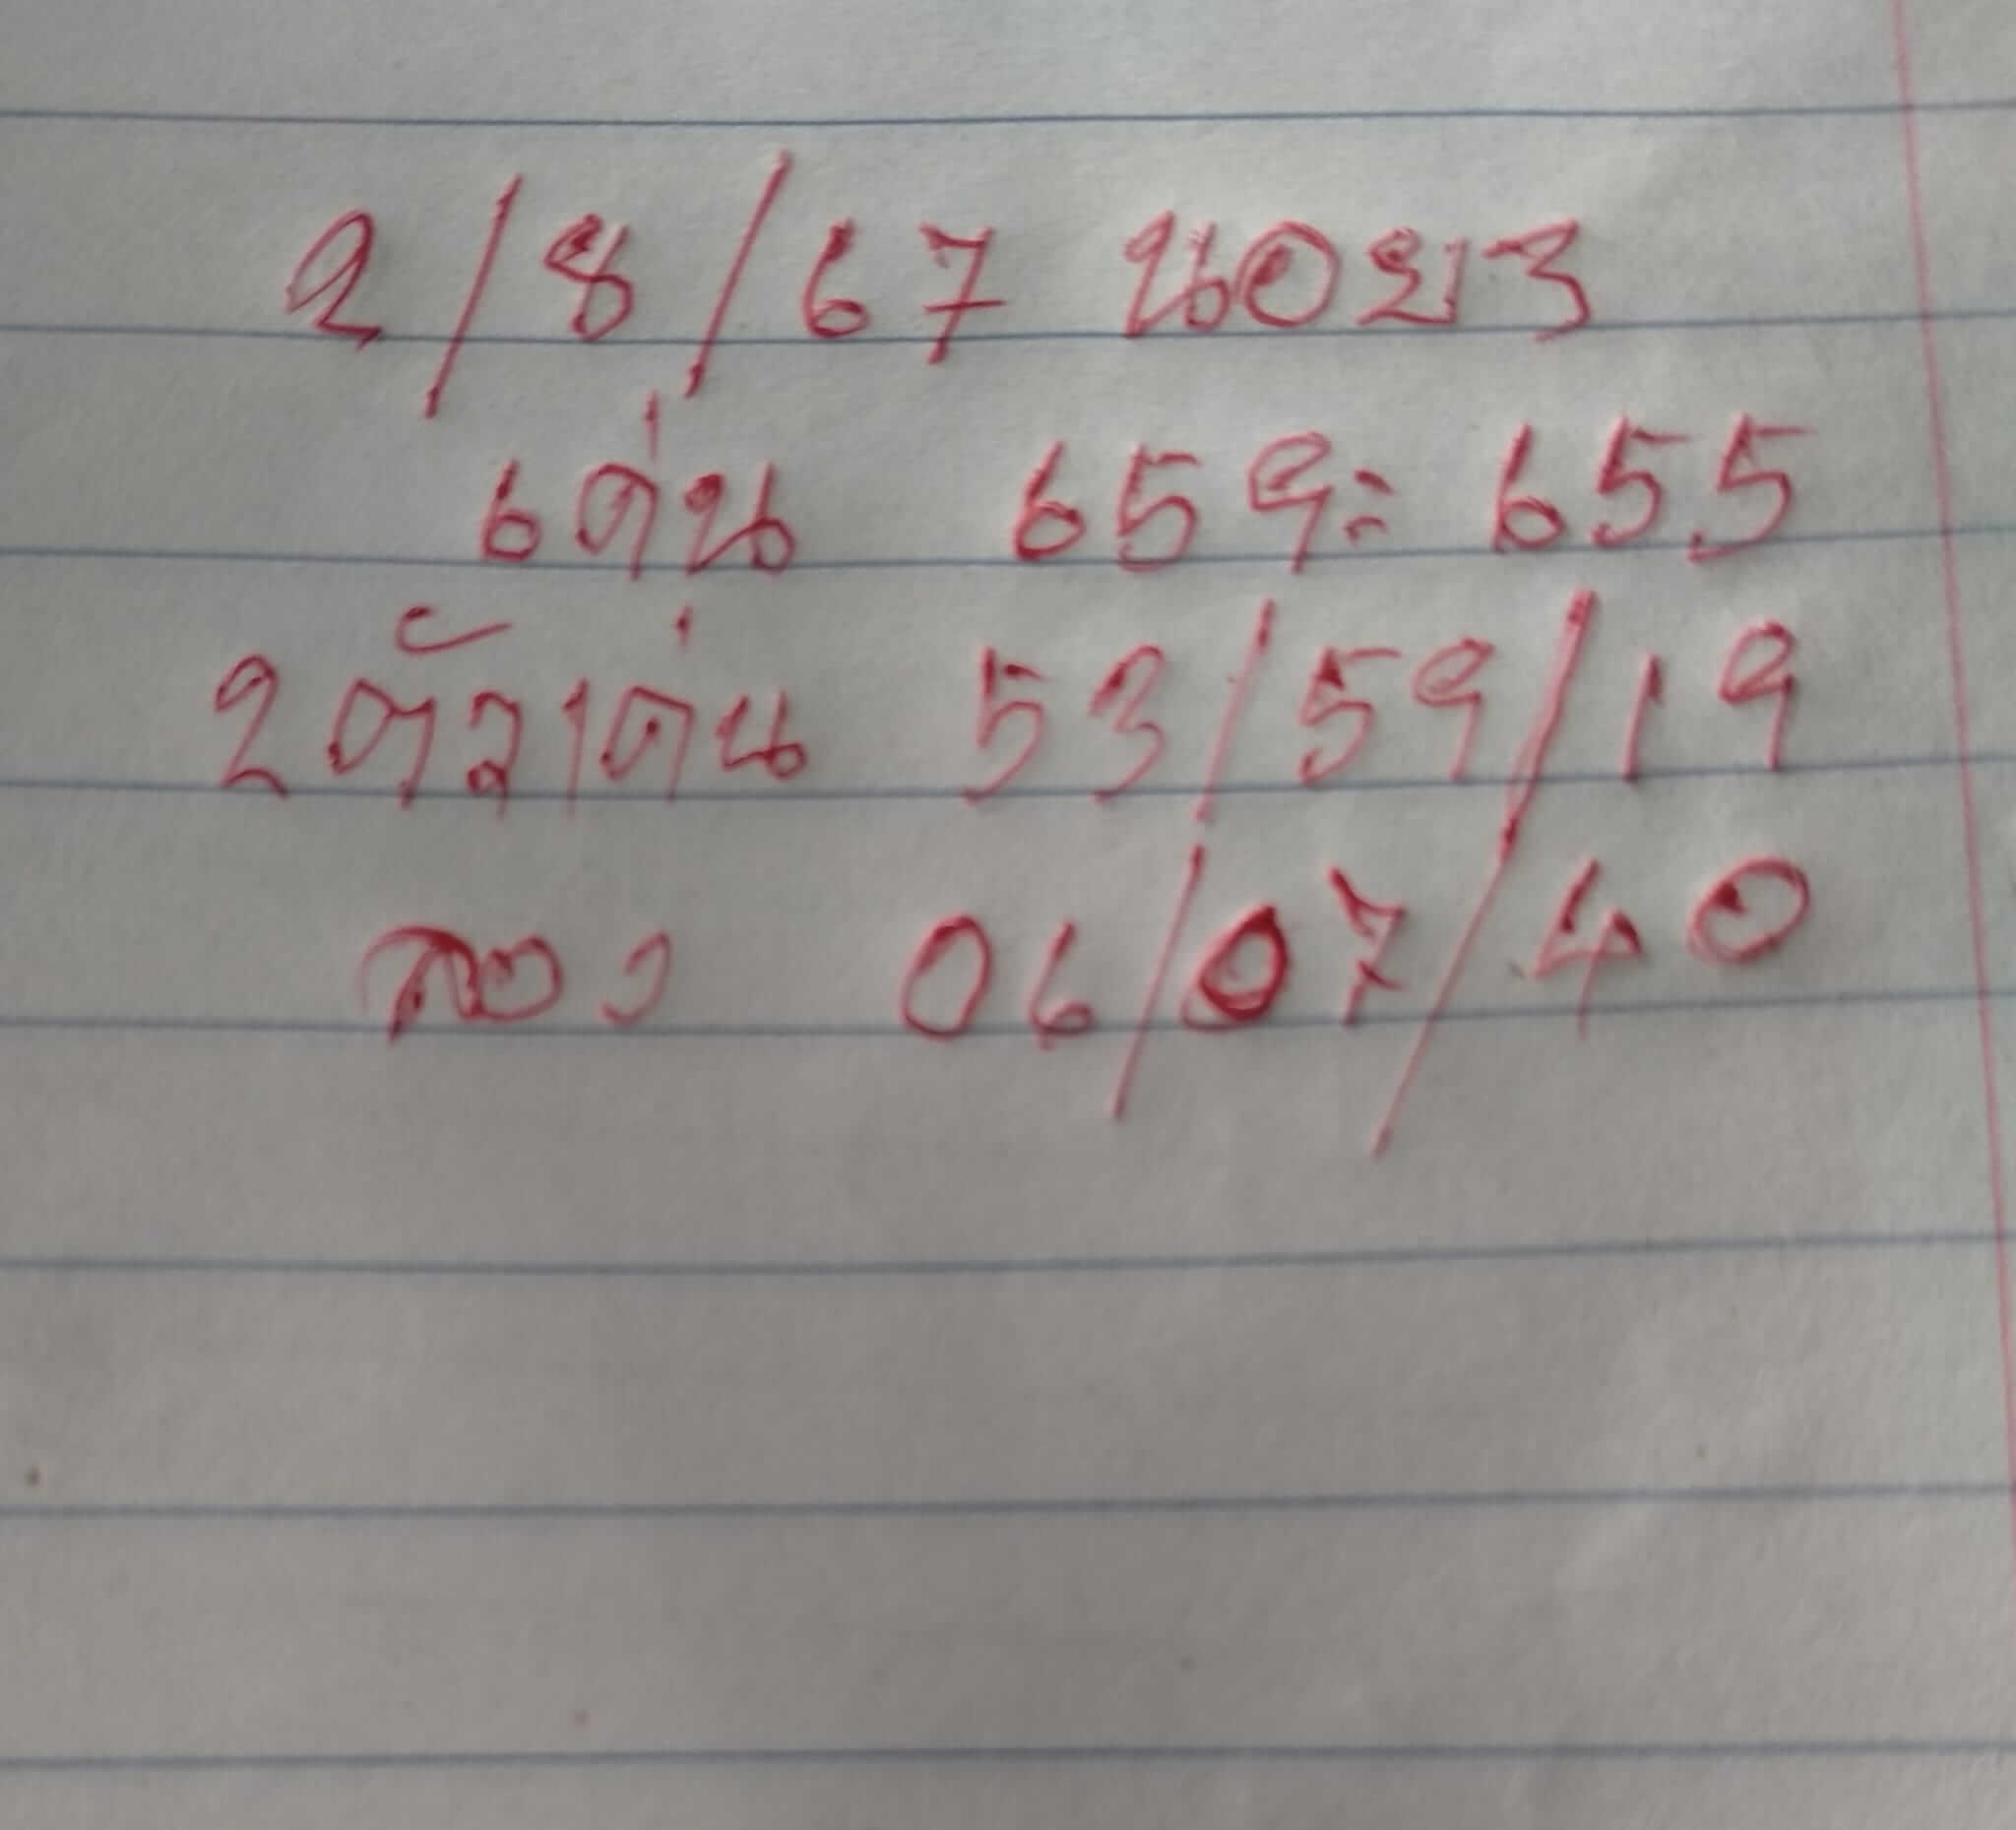 2/8/67 นอยร
เด่น 659= 655
2ตัวเด่น 53/59/19
ลอง 06/07/40